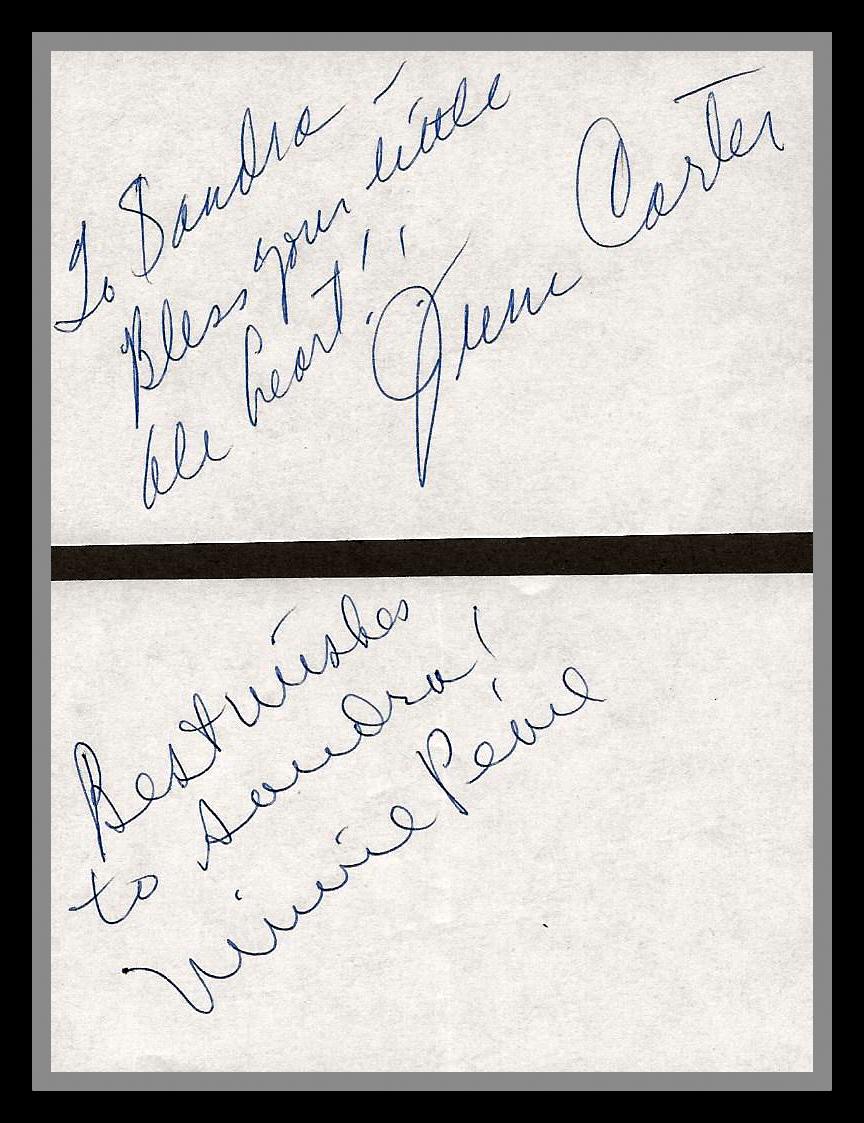 To Sandra -
Bless your little
ole heart!!
June Carter
Best wishes
to Sandra!
Minnie Pearl